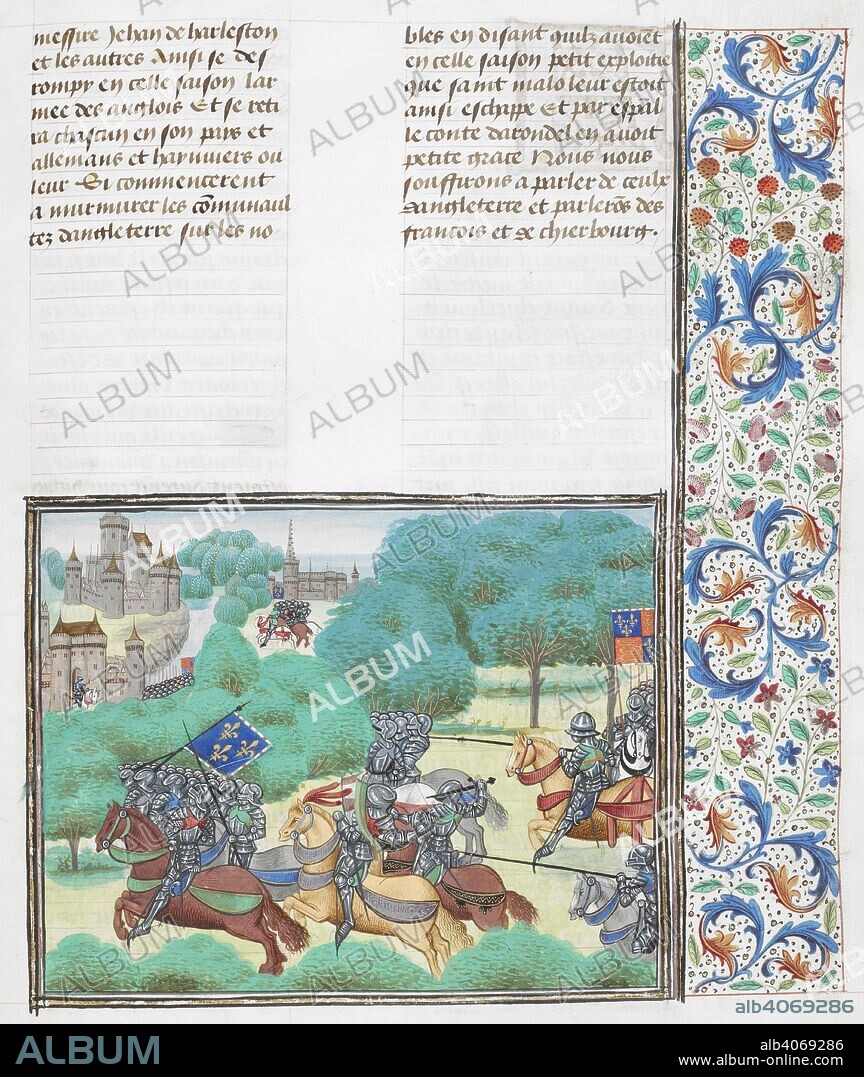 messire Jehan de harleston
et les autres Ainsi se des
rompy en celle saison lar
mee des anglois Et se reti
ra chascun en son pays et
allemans et haynuiers ou
leur Si commencerent
a murmurer les cōmunaul
tez dangleterre sur les no
bles en disant quilz auoiēt
en celle saison petit exploitie
que saint malo leur estoit
ainsi eschappe Et par espāl
le conte darondel en auoit
petite grace Nous nous
souffirons a parler de ceulx
dangleterre et parlerōs des
francois et de chierbourg.
ALBUM
alb4069286
ALBUM
alb4069286
www.album-online.com